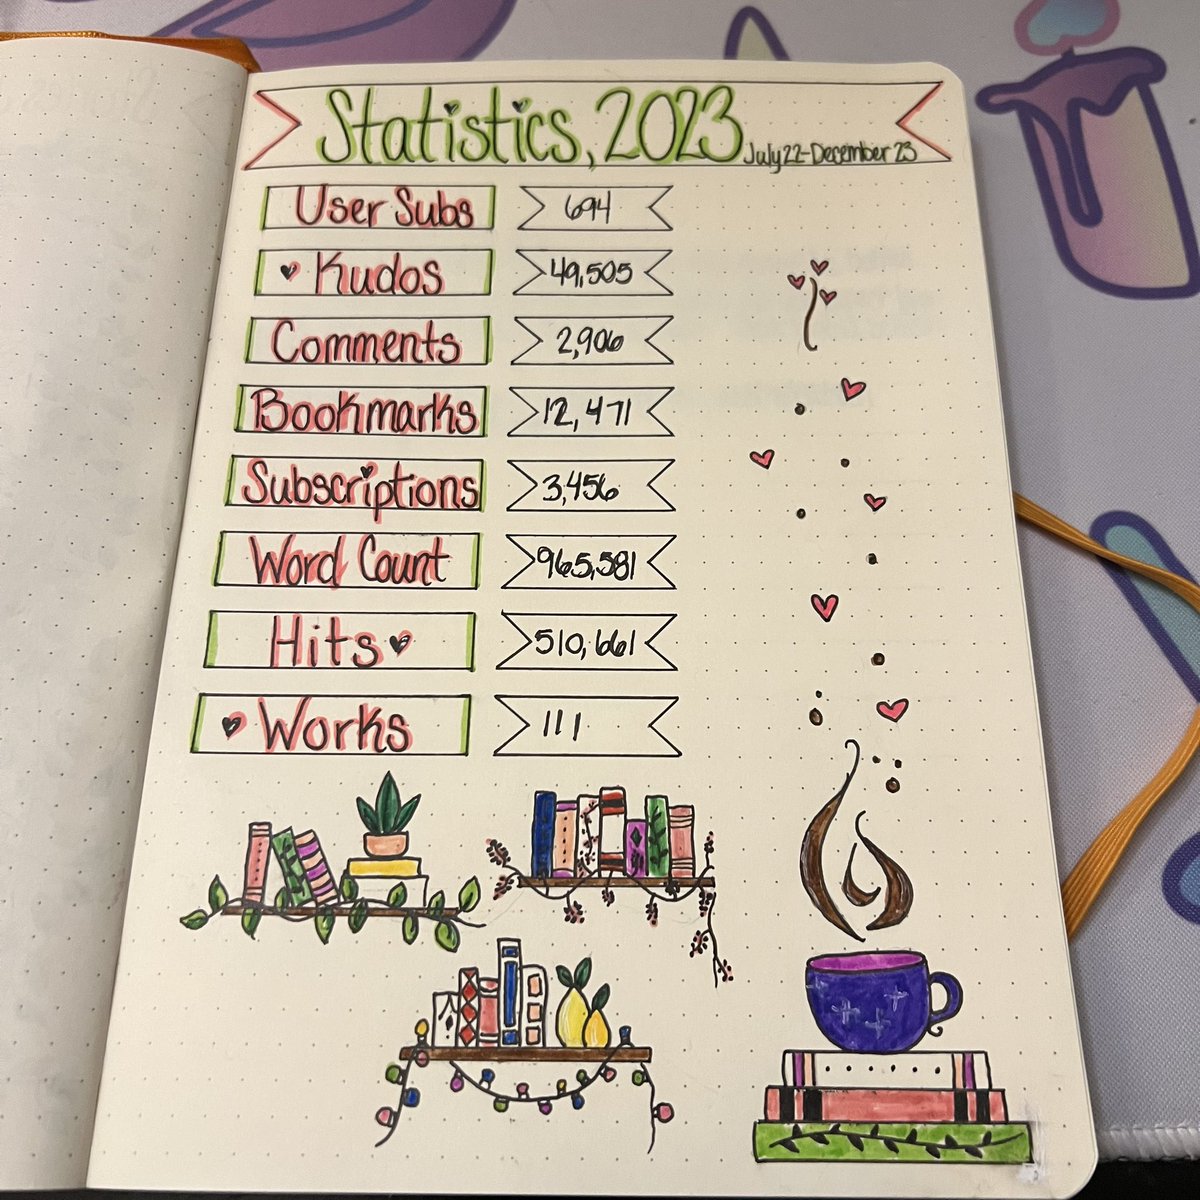 Statistics, 2023
July 22-December 23
User Subs 694
Kudos 49,505
Comments 2,906
Bookmarks 12,471
Subscriptions 3,456
Word Count 965,581
Hits 510,661
Works 111